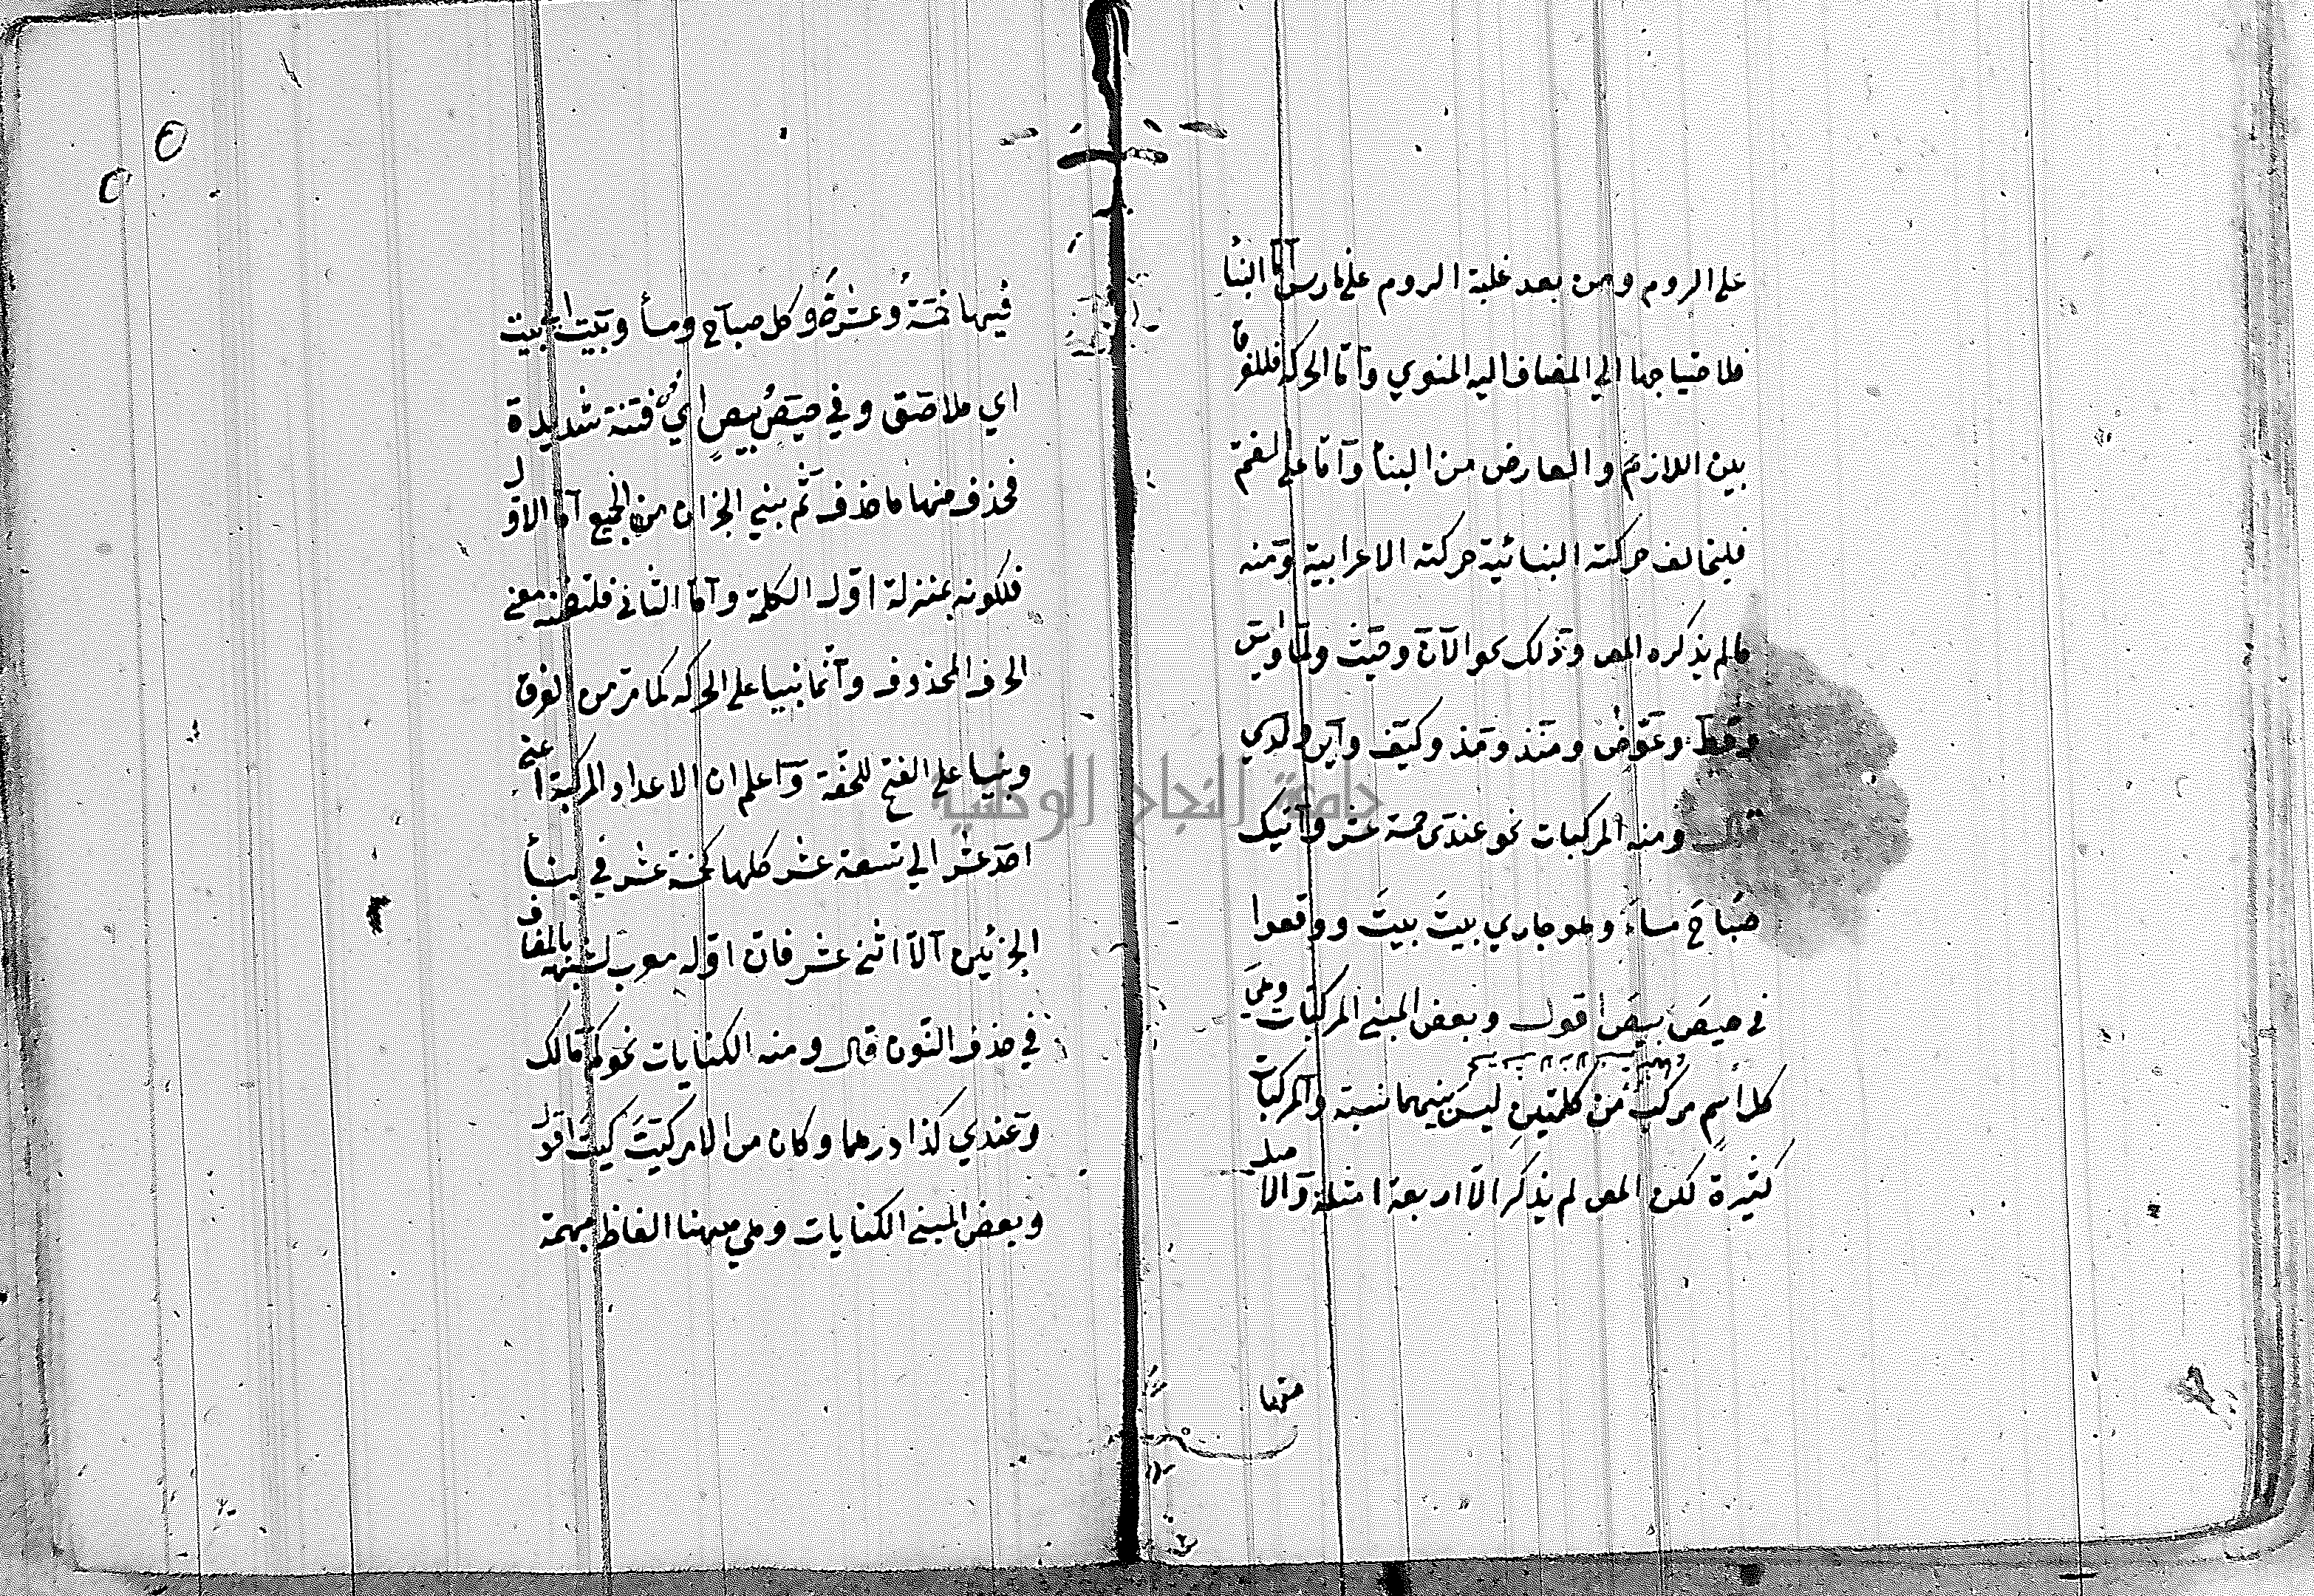 على الروم ومن بعد غلبة الروم على فارس آمّا البنأ
فلاحتياجها الي المضاف اليه المنوي وآمّا الحركة فللفرق
بين اللازم والعارض من البنأ وآمّا على الضمّ
فليخالف حركته البنائية حركته الاعرابية ومنه
مالم يذكره المص وذلك نحو الآن وحيث ولمّا وامس
وقط وعوض ومنذ ومذ وكيف واين ولدي
قال ومنه المركبات نحو عندي خمسة عشر وآتيك
صَباحَ مساءَ وهو جاري بيتَ بيتَ ووقعوا
في حيصَ بيصَ اقول وبعض المبني المركبات وهي
كل اسم مركب من كلمتين ليس بينهما نسبة والمركبات
كثيرة لكن المص لم يذكر الّا اربعة امثلة والاصل
منها
فيها خمسةٌ وعشرةٌ وكل صباح ومسأ وبيت لبيت
اي ملاصق وفي حيصٍ بيصٍ اي فتنة شديدة
فحذف منها ما حذف ثم بني الجزان من الجميع آمّا الاول
فلكونه بمنزلة اوّل الكلمة وآمّا الثاني فلتضمنه معني
الحرف المحذوف وآنّما بنيا على الحركه كما مرّ من الفرق
وبنيا على الفتح للخفّة وآعلم ان الاعداد المركبة اعني
احد عشر الي تسعة عشر كلها كخمسة عشر في بنأ
الجزئين آلّا اثني عشر فان اوّله معرب لشبهه بالمضاف
في حذف النّون قال ومنه الكنايات نحو كم مالك
وعندي كذا درهما وكان من الامر كيتَ كيتَ اقول
وبعض المبني الكنايات وهي ههنا الفاظ مبهمة
جامعة النجاح الوطنية